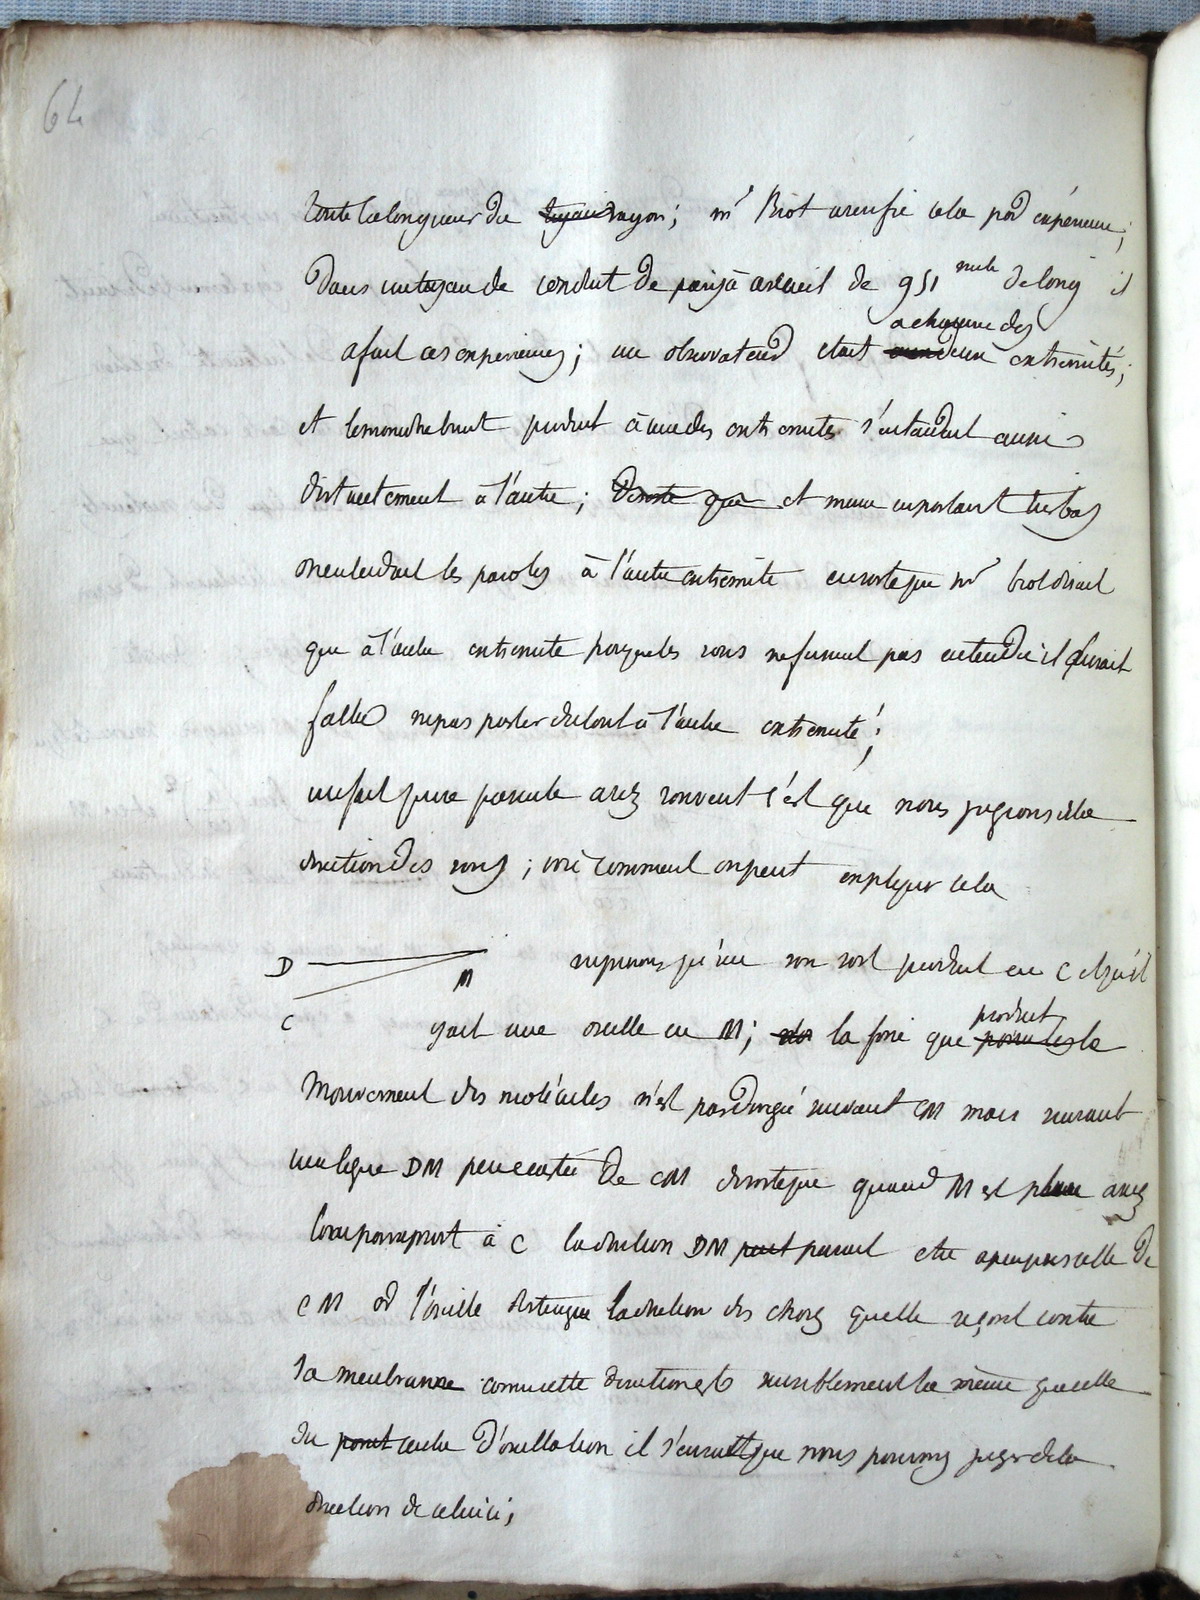 64
toute la longueur du tuyau rayon; mr Biot a verifié cela par expérience;
Dans un tuyau de conduit de paris à arcueil de 951 metr de long il
a chacune des
a fait ces experiences; un observateur etait aux deux extremités;
et le moindre bruit produit à une des extremites s'entendait aussi
distinctement à l'autre; De sorte que et meme en parlant tres bas
on entendait les paroles à l'autre extremite en sorte que mr biot disait
que à l'autre extremite pour que les sons ne fussent pas entendu il aurait
fallu ne pas parler du tout à l'autre extremité;
un fait qui se presente assez souvent c'est que nous jugeons de la
direction des sons; voici comment on peut expliquer cela
D
M
supposons qu'un son soit produit en C et qu'il
C
produit
y ait une oreille en M; la force que le
Mouvement des molécules n'est pas dirigée suivant CM mais suivant
une ligne DM peu ecartée De CM de sorte que quand M est place assez
loin par rapport à C la direction DM peut parait etre a peu pres celle De
CM or l'oreille distingue la direction des chocs quelle reçoit contre
sa membranne comme cette direction est sensiblement la même que celle
du point centre d'oscillation il s'ensuit que nous pouvons juger de la
direction de celui ci;